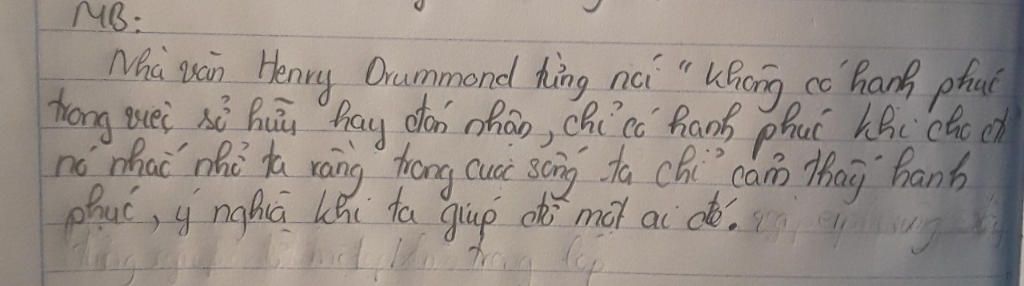 MB:
Nhà văn Henry Drummond từng nói "không có hạnh phúc
trong việc sở hữu hay đón nhận, chỉ có hạnh phúc khi cho đi
nó nhắc nhở ta rằng trong cuộc sống ta chỉ cảm thấy hạnh
phúc, ý nghĩa khi ta giúp đỡ một ai đó.